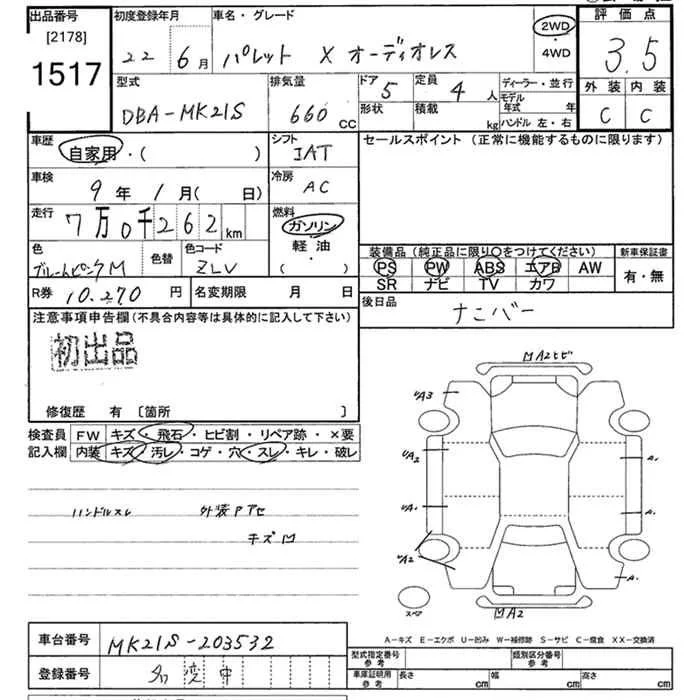 出品番号
[2178]
1517
初度登録年月
22 6月
車名・グレード
パレット X オーディオレス
2WD
・
4WD
評価点
3.5
外装 内装
C C
型式
DBA-MK21S
排気量
660 CC
ドア 5
形状
定員 4 人
積載 kg
ディーラー・並行
モデル年式 年
ハンドル 左・右
車歴
自家用・( )
シフト
IAT
セールスポイント (正常に機能するものに限ります)
車検
9年 1月( 日)
冷房
AC
走行
7万0千262km
燃料
ガソリン
・
軽油
( )
色
ブルームピンクM
色替
色コード
ZLV
装備品 (純正品に限り○をつけてください)
PS PW ABS エアB AW
SR ナビ TV カワ
新車保証書
有・無
R券 10.270円
名変期限 月 日
後日品
ナンバー
注意事項申告欄(不具合内容等は具体的に記入して下さい)
初出品
修復歴 有 [箇所 ]
検査員記入欄
FW キズ・飛石・ヒビ割・リペア跡・×要
内装 キズ・汚レ・コゲ・穴・スレ・キレ・破レ
ハンドルスレ 外装Pアセ
キズ凹
凹A2ヒビ
UA3
UA2
A1
UA1
A1
UA2
A1
スペア
凹A2
A-キズ E-エクボ U-凹み W-補修跡 S-サビ C-腐食 XX-交換済
車台番号
MK21S-203532
登録番号
名変中
型式指定番号 参考
類別区分番号 参考
車庫証明用 参考
長さ cm
幅 cm
高さ cm